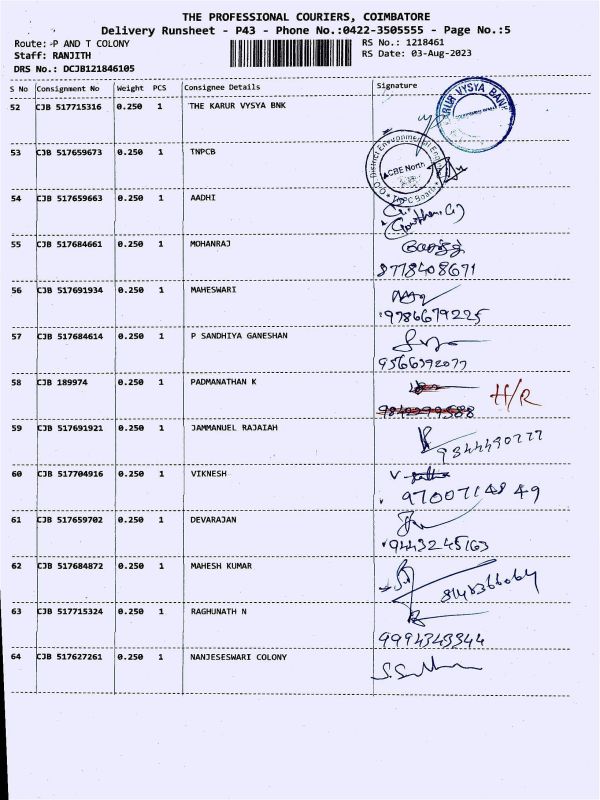 THE PROFESSIONAL COURIERS, COIMBATORE
Delivery Runsheet - P43 - Phone No.:0422-3505555 - Page No.:5
Route: P AND T COLONY RS No.: 1218461
Staff: RANJITH RS Date: 03-Aug-2023
DRS No.: DCJB121846105
S No Consignment No Weight PCS Consignee Details Signature
52 CJB 517715316 0.250 1 THE KARUR VYSYA BNK KARUR VYSYA BANK
53 CJB 517659673 0.250 1 TNPCB District Environmental CBE North
54 CJB 517659663 0.250 1 AADHI
55 CJB 517684661 0.250 1 MOHANRAJ
8778408671
56 CJB 517691934 0.250 1 MAHESWARI
9786679225
57 CJB 517684614 0.250 1 P SANDHIYA GANESHAN
9566392077
58 CJB 189974 0.250 1 PADMANATHAN K H/R
59 CJB 517691921 0.250 1 JAMMANUEL RAJAIAH
9344490777
60 CJB 517704916 0.250 1 VIKNESH V
9700714849
61 CJB 517659702 0.250 1 DEVARAJAN
9443245163
62 CJB 517684872 0.250 1 MAHESH KUMAR
8148366064
63 CJB 517715324 0.250 1 RAGHUNATH N
9994343344
64 CJB 517627261 0.250 1 NANJESESWARI COLONY